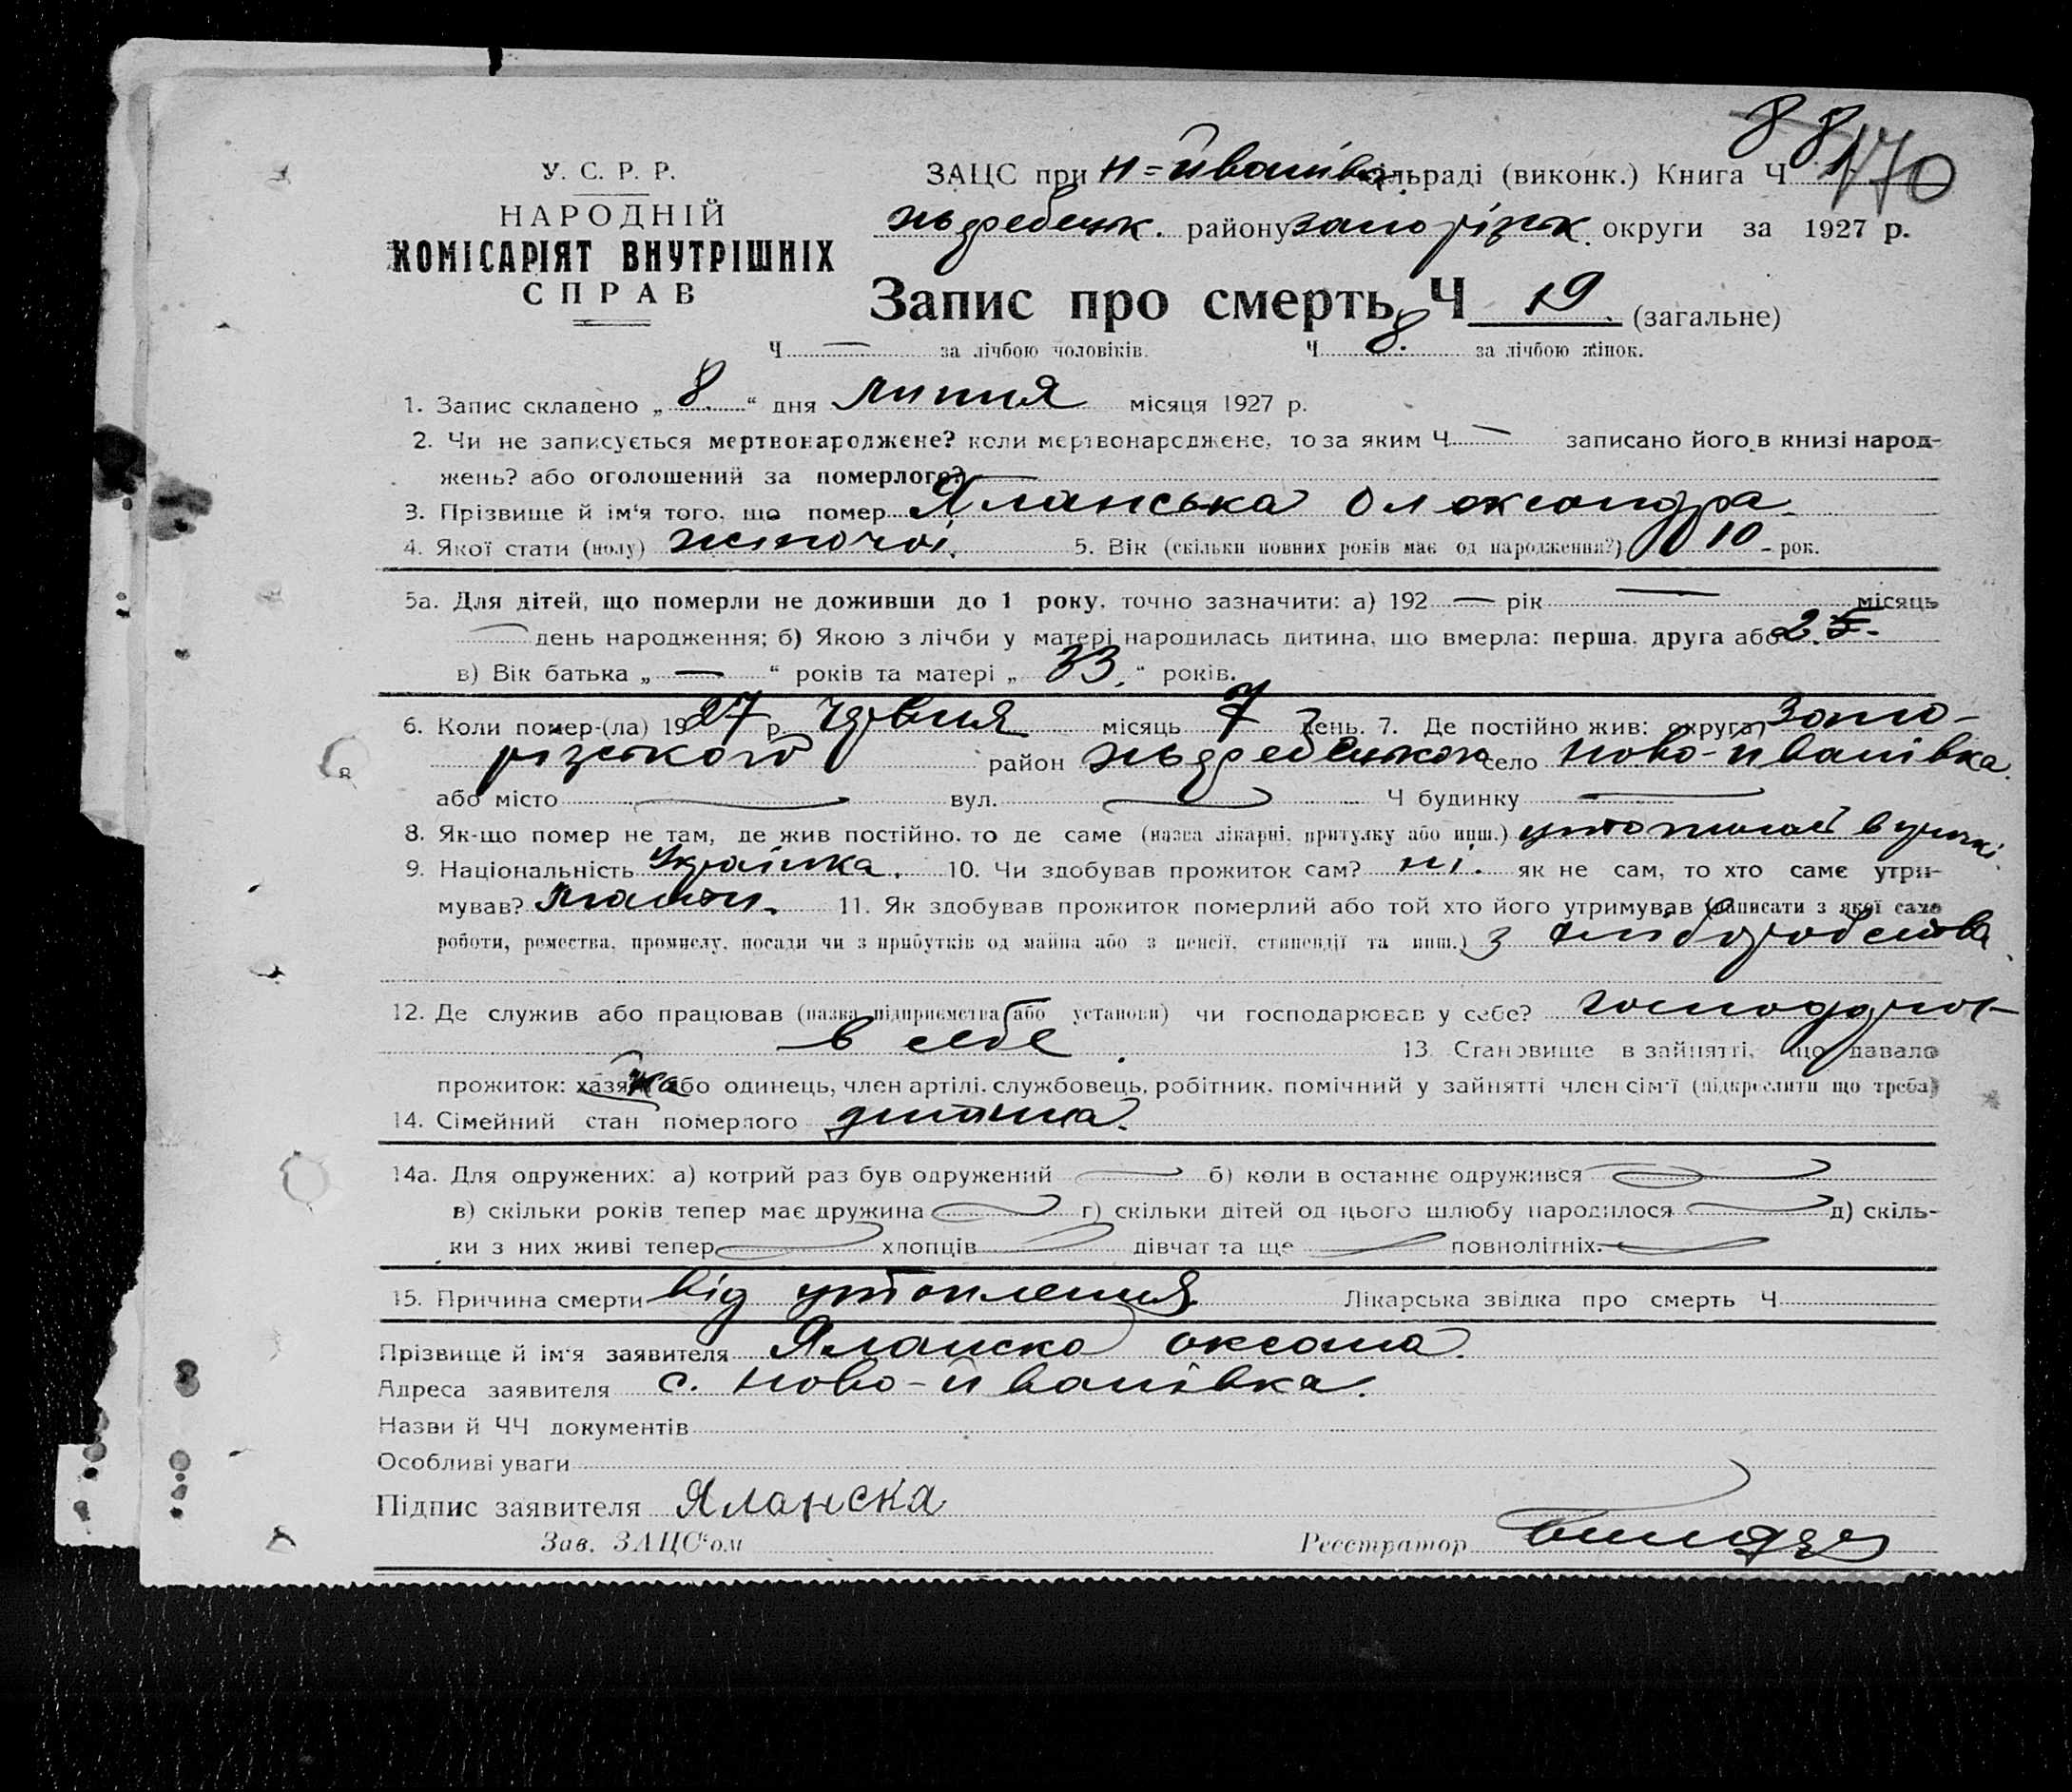 88
170
У. С. Р. Р.
НАРОДНІЙ
КОМІСАРІЯТ ВНУТРІШНІХ
СПРАВ
ЗАЦС при Н=Йванівк. сільраді (виконк.) Книга Ч
району запорізьк. округи за 1927 р.
Запис про смерть Ч 19. (загальне)
Ч — за лічбою чоловіків. Ч 8. за лічбою жінок.
1. Запис складено „ 8 “ дня липня місяця 1927 р.
2. Чи не записується мертвонароджене? коли мертвонароджене, то за яким Ч — записано його в книзі народ-
жень? або оголошений за померлого? —
3. Прізвище й ім‘я того, що помер Яланська Олександра.
4. Якої стати (полу) жіночої. 5. Вік (скільки повних років має од народження?) 10 - рок.
5а. Для дітей, що померли не доживши до 1 року, точно зазначити: а) 192 — рік — місяць
— день народження; б) Якою з лічби у матері народилась дитина, що вмерла: перша, друга або 2.
в) Вік батька „ — “ років та матері „ 33. “ років.
6. Коли помер-(ла) 1927 р. червня місяць 7 день. 7. Де постійно жив: округа Запо-
різького район село Ново-Иванівка.
або місто — вул. — Ч будинку —
8. Як-що помер не там, де жив постійно, то де саме (назва лікарні, притулку або инш.) в
9. Національність Українка. 10. Чи здобував прожиток сам? ні. як не сам, то хто саме утри-
мував? мати. 11. Як здобував прожиток померлий або той хто його утримував (написати з якої саме
роботи, ремества, промислу, посади чи з прибутків од майна або з пенсії, стипендії та инш.) з хліборобства
12. Де служив або працював (назва підприємства або установи) чи господарював у себе?
в себе. 13. Становище в зайнятті, що давало
прожиток: хазяйка або одинець, член артілі, службовець, робітник, помічний у зайнятті член сім‘ї (підкреслити що треба)
14. Сімейний стан померлого дитина.
14а. Для одружених: а) котрий раз був одружений — б) коли в останнє одружився —
в) скільки років тепер має дружина — г) скільки дітей од цього шлюбу народилося — д) скіль-
ки з них живі тепер — хлопців — дівчат та ще — повнолітніх. —
15. Причина смерти від утоплення Лікарська звідка про смерть Ч
Прізвище й ім‘я заявителя Яланска Оксана.
Адреса заявителя с. Ново-Йванівка.
Назви й ЧЧ документів
Особливі уваги
Підпис заявителя Яланска
Зав. ЗАЦС‘ом Реєстратор